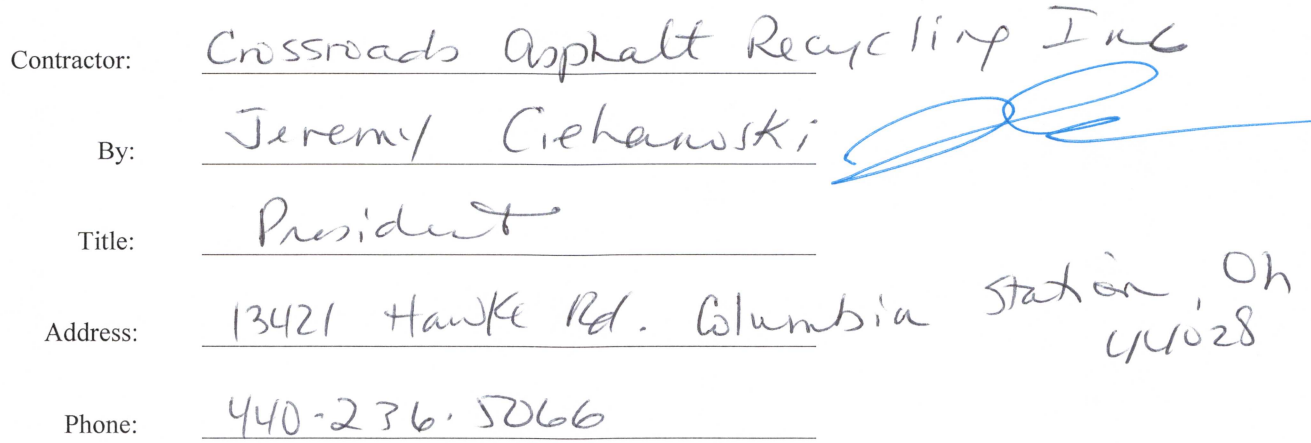 Contractor: Crossroads Asphalt Recycling Inc
By: Jeremy Ciehanoski
Title: President
Address: 13421 Hawke Rd. Columbia Station, Oh
44028
Phone: 440-236-5066